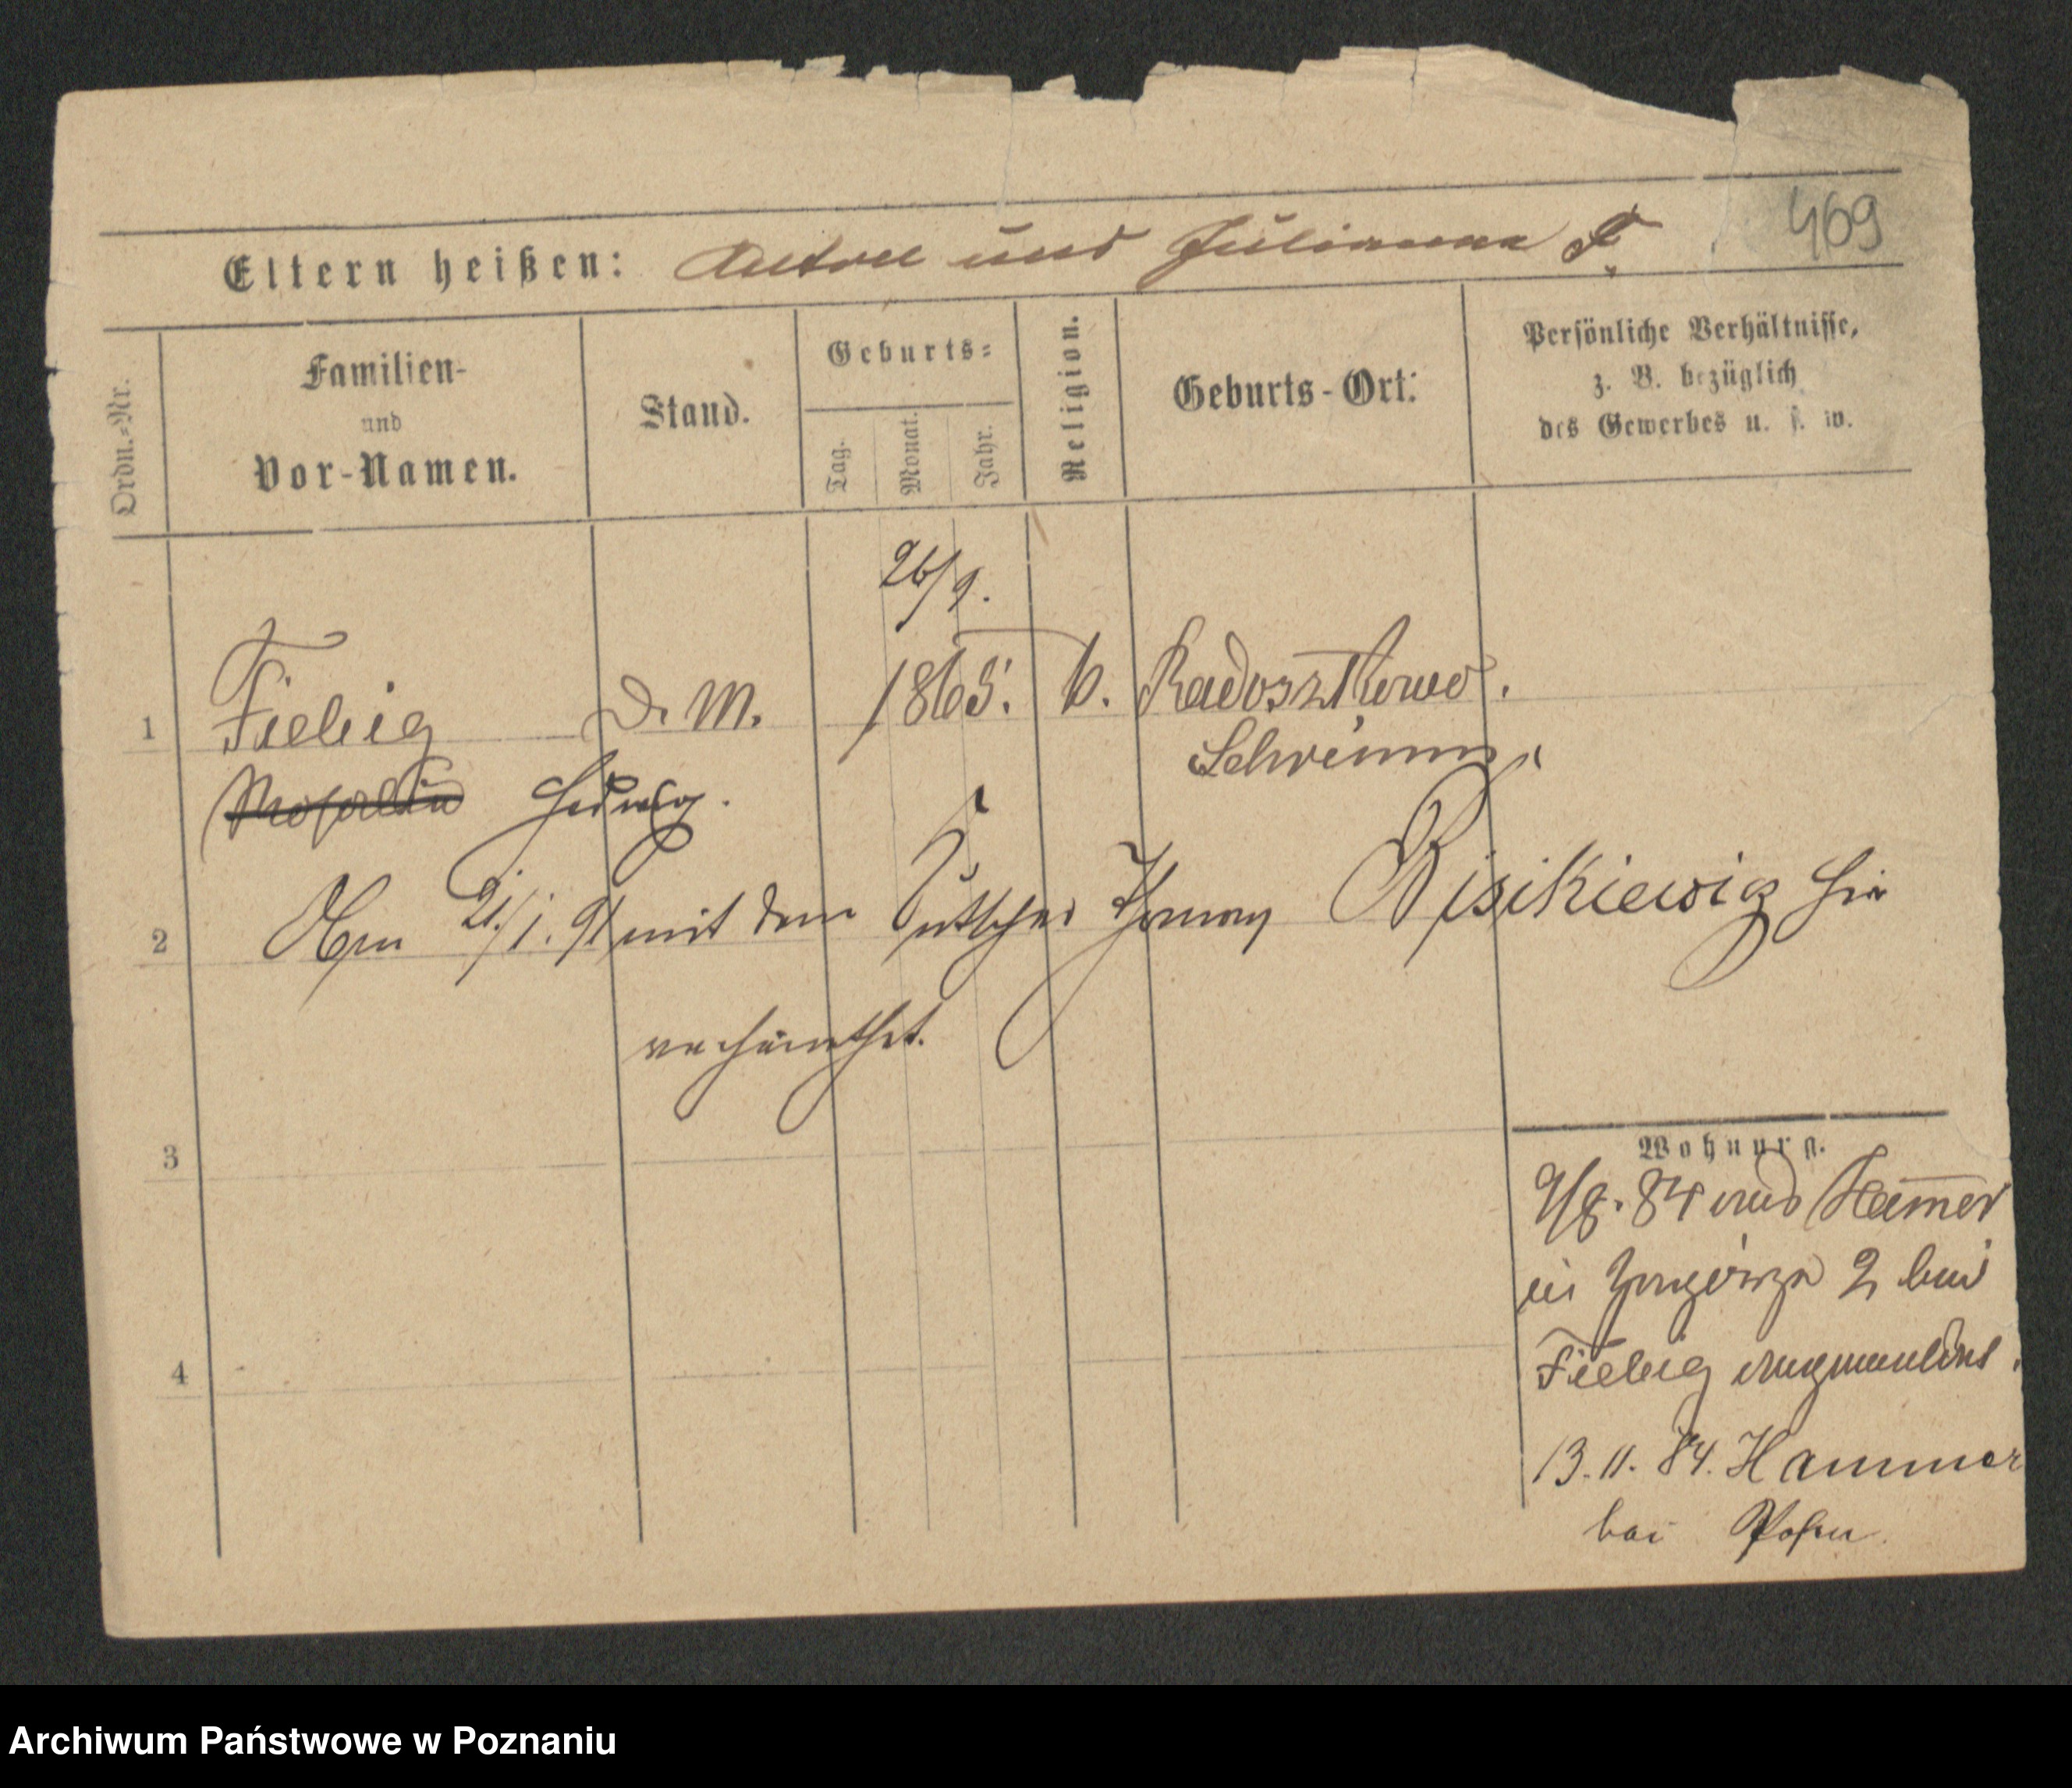 469
Eltern heißen: Anton und Julianna F.
Ordn.=Nr.
Familien-
und
Vor-Namen.
Stand.
Geburts=
Tag.
Monat.
Jahr.
Religion.
Geburts-Ort:
Persönliche Verhältnisse,
z. B. bezüglich
des Gewerbes u. s. w.
26/9.
1 Fiebig D. M. 1865. k. Radosztkowo.
Schrimm
Hedwig.
2 Am 21/1. 91 mit dem Kutscher Thomas hier
verheirathet.
3
4
Wohnung.
9/8. 84 aus Ham̅er
in Zagórze 2 bei
Fiebig angemeldet.
13. 11. 84. Hammer
bei Posen.
Archiwum Państwowe w Poznaniu